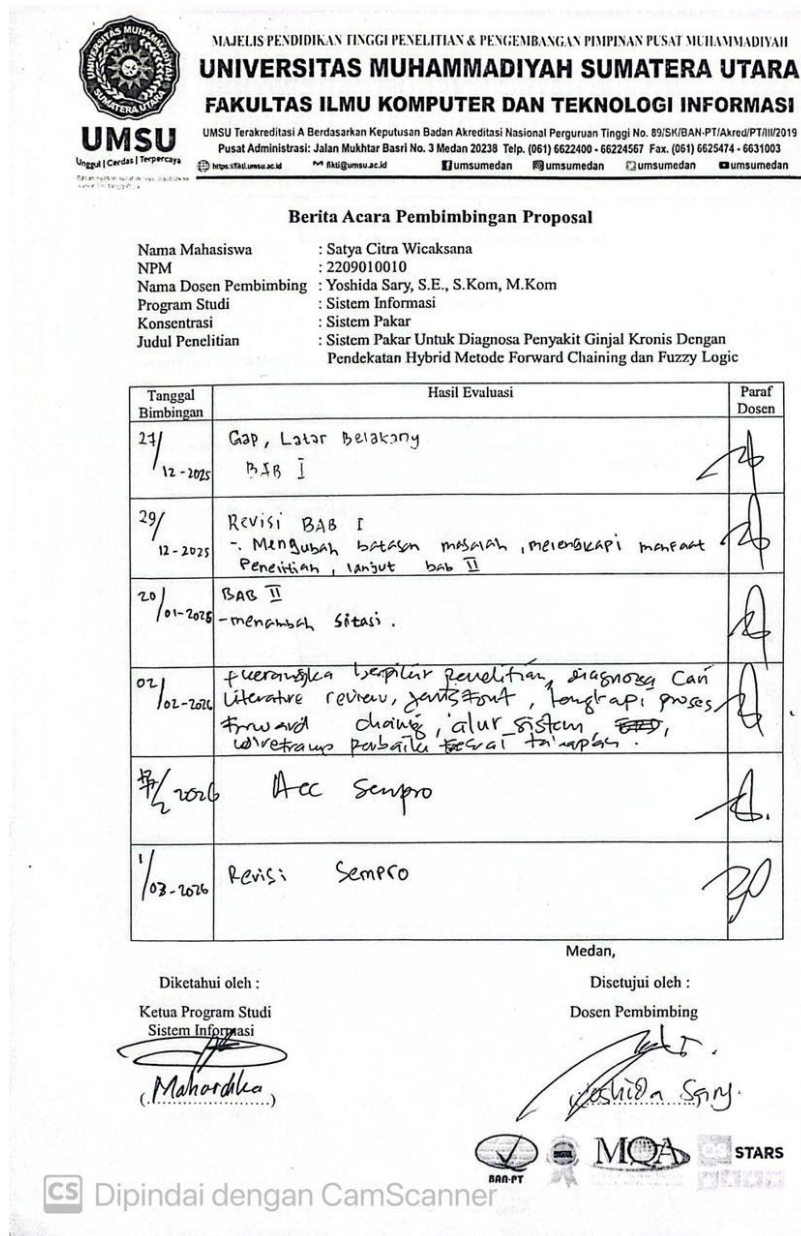 MAJELIS PENDIDIKAN TINGGI PENELITIAN & PENGEMBANGAN PIMPINAN PUSAT MUHAMMADIYAH
UNIVERSITAS MUHAMMADIYAH SUMATERA UTARA
FAKULTAS ILMU KOMPUTER DAN TEKNOLOGI INFORMASI
UMSU
Unggul | Cerdas | Terpercaya
UMSU Terakreditasi A Berdasarkan Keputusan Badan Akreditasi Nasional Perguruan Tinggi No. 89/SK/BAN-PT/Akred/PT/III/2019
Pusat Administrasi: Jalan Mukhtar Basri No. 3 Medan 20238 Telp. (061) 6622400 - 66224567 Fax. (061) 6625474 - 6631003
https://fikti.umsu.ac.id fikti@umsu.ac.id umsumedan umsumedan umsumedan umsumedan
Berita Acara Pembimbingan Proposal
Nama Mahasiswa : Satya Citra Wicaksana
NPM : 2209010010
Nama Dosen Pembimbing : Yoshida Sary, S.E., S.Kom, M.Kom
Program Studi : Sistem Informasi
Konsentrasi : Sistem Pakar
Judul Penelitian : Sistem Pakar Untuk Diagnosa Penyakit Ginjal Kronis Dengan
Pendekatan Hybrid Metode Forward Chaining dan Fuzzy Logic
Tanggal Bimbingan Hasil Evaluasi Paraf Dosen
27/12-2025 Gap, Latar Belakang
BAB I
29/12-2025 Revisi BAB I
-. Mengubah batasan masalah, melengkapi manfaat
Penelitian, lanjut bab II
20/01-2026 BAB II
- menambah sitasi.
02/02-2026 kerangka berpikir penelitian, diagnosa cari
Literature review, jenis font, lengkapi proses
forward chaing, alur sistem,
perbaiki
2026 Acc Sempro
1/03-2026 Revisi Sempro
Medan,
Diketahui oleh : Disetujui oleh :
Ketua Program Studi Dosen Pembimbing
Sistem Informasi
(Mahardika) Yoshida Sary.
BAN-PT MQA QS STARS
CS Dipindai dengan CamScanner